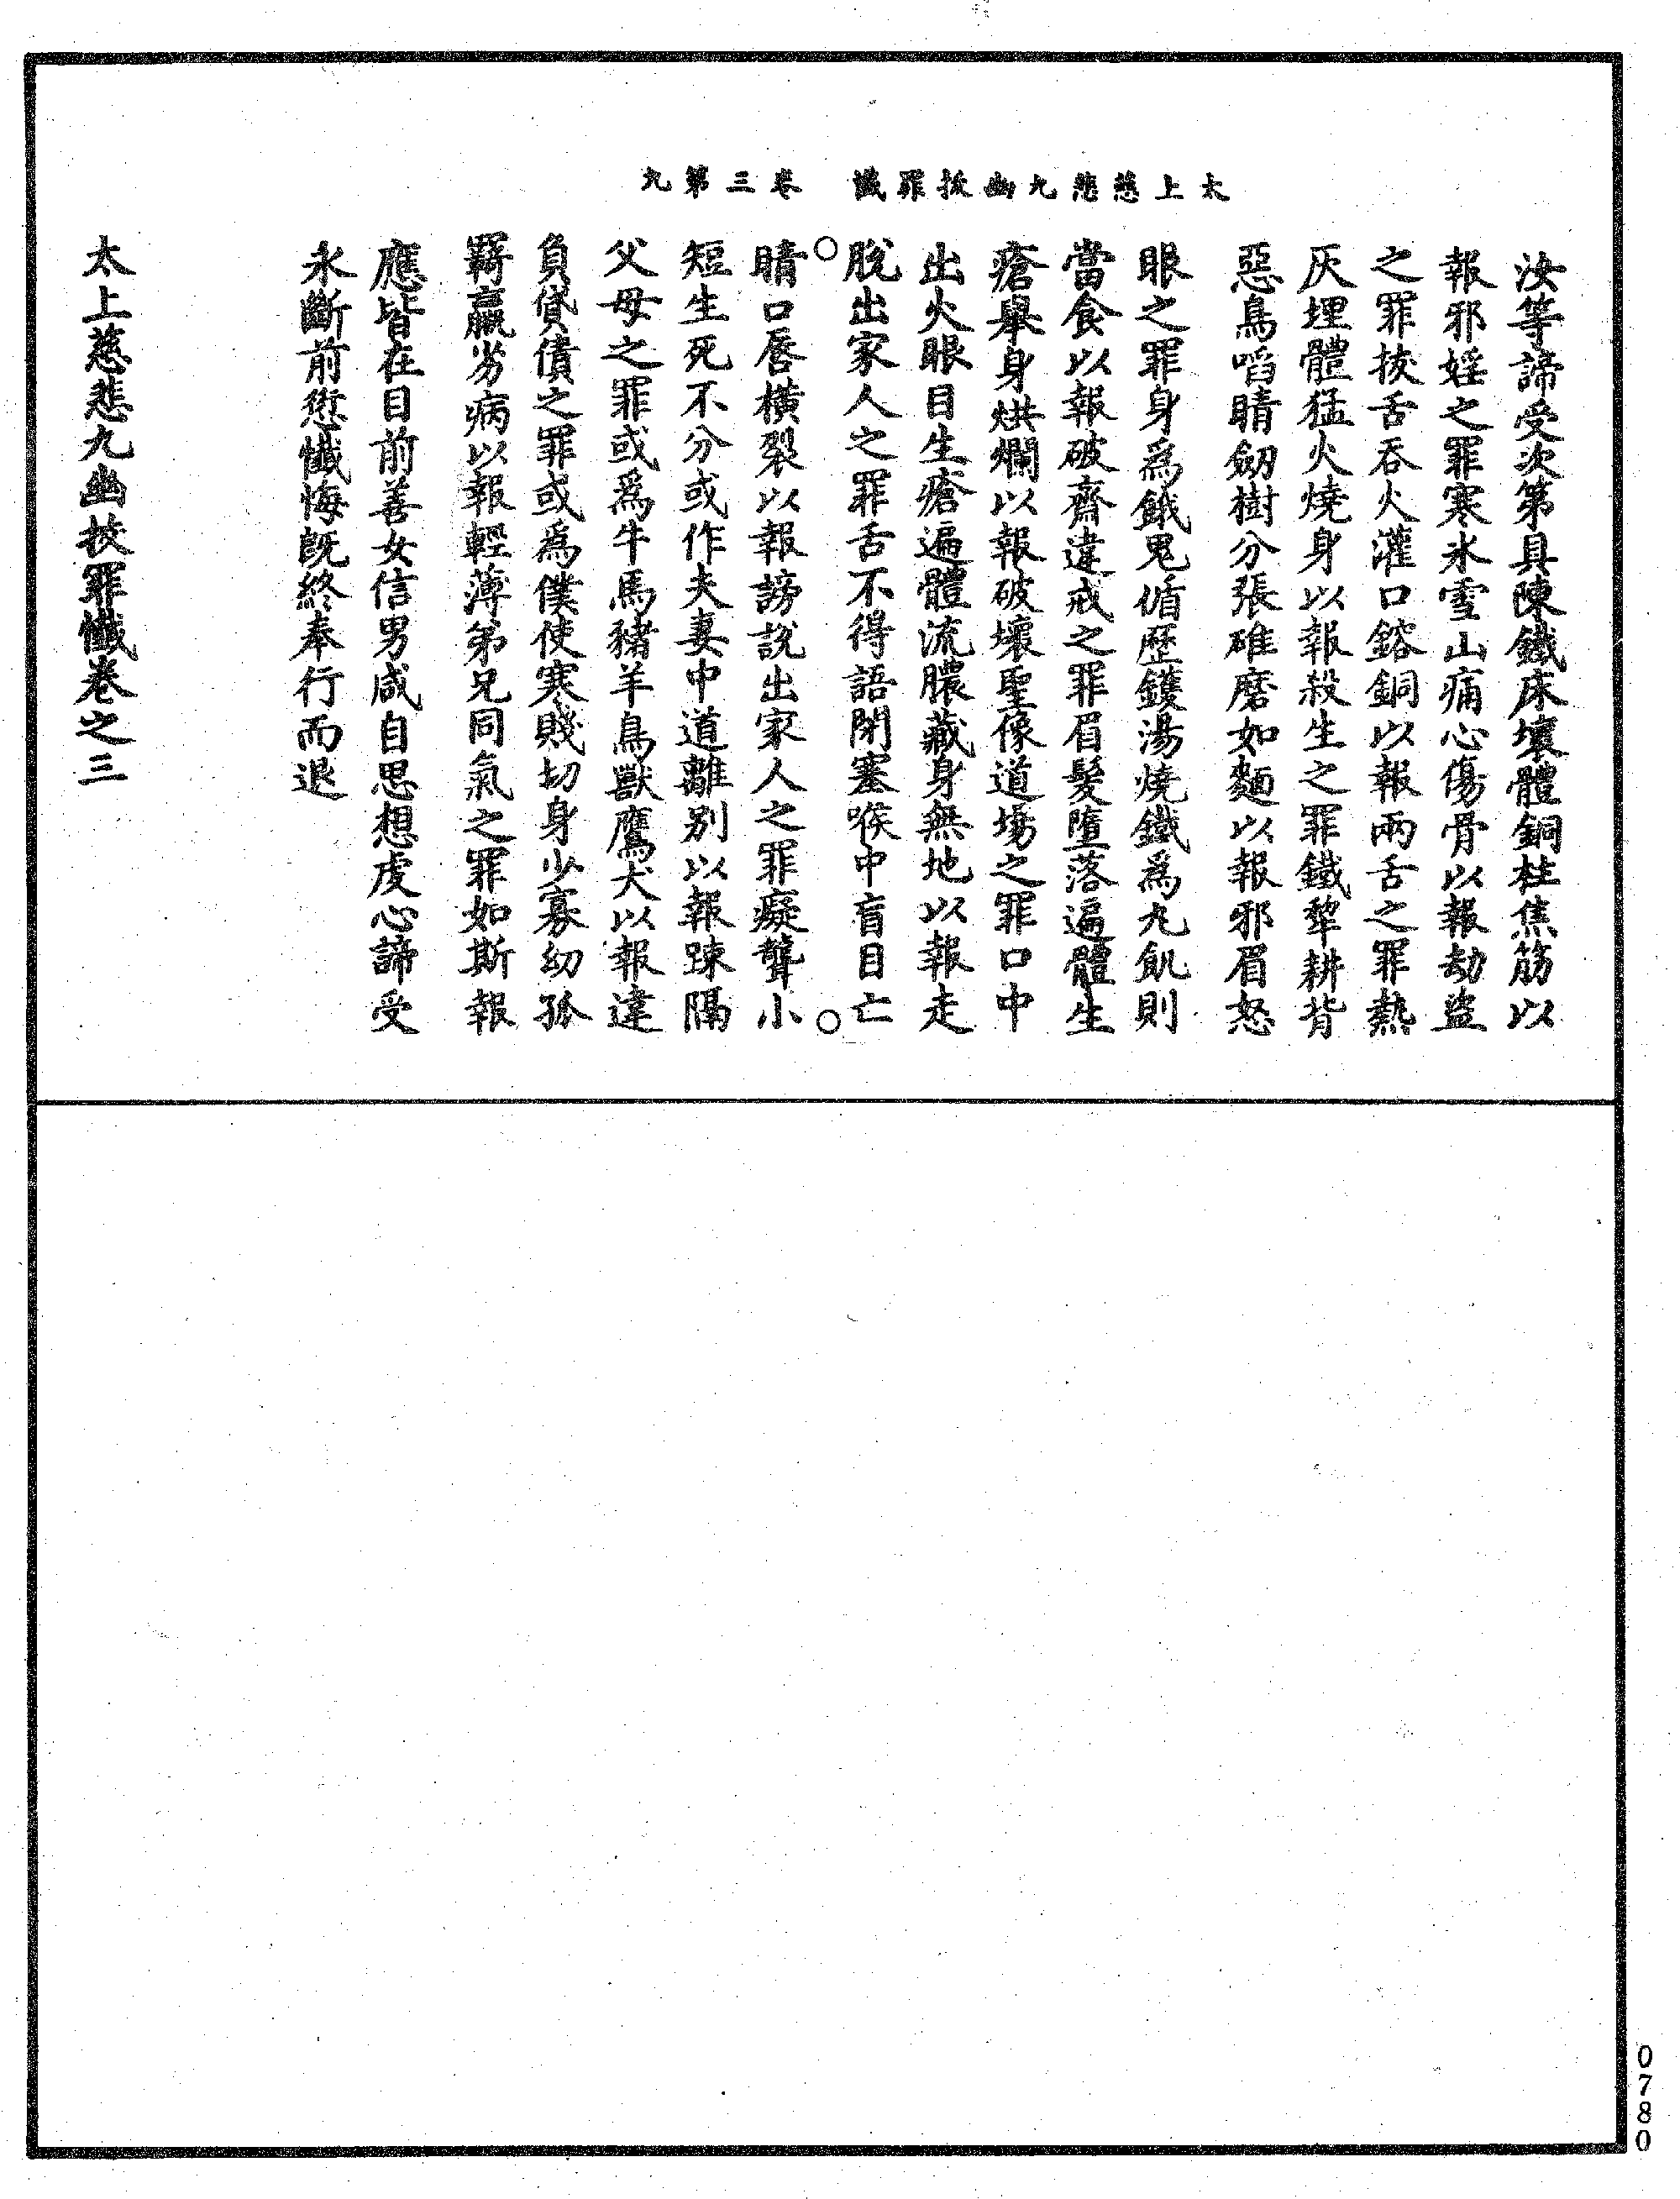 太上慈悲九幽拔罪懺　卷三第九
汝等諦受次第具陳鐵床壞體銅柱焦筋以
報邪婬之罪寒氷雪山痛心傷骨以報劫盜
之罪拔舌吞火灌口鎔銅以報兩舌之罪熱
灰埋體猛火燒身以報殺生之罪鐵犂耕背
惡鳥啗睛劒樹分張碓磨如麵以報邪眉怒
眼之罪身爲餓鬼循歷鑊湯燒鐵爲丸飢則
當食以報破齋違戒之罪眉髮墮落遍體生
瘡舉身烘爛以報破壞聖像道場之罪口中
出火眼目生瘡遍體流膿藏身無地以報走
脫出家人之罪舌不得語閉塞喉中盲目亡
睛口唇橫裂以報謗說出家人之罪癡聾小
短生死不分或作夫妻中道離別以報踈隔
父母之罪或爲牛馬豬羊鳥獸鷹犬以報違
負貸債之罪或爲僕使寒賤切身少寡幼孤
羇羸劣病以報輕薄弟兄同氣之罪如斯報
應皆在目前善女信男咸自思想虔心諦受
永斷前愆懺悔旣終奉行而退
太上慈悲九幽拔罪懺卷之三
0780